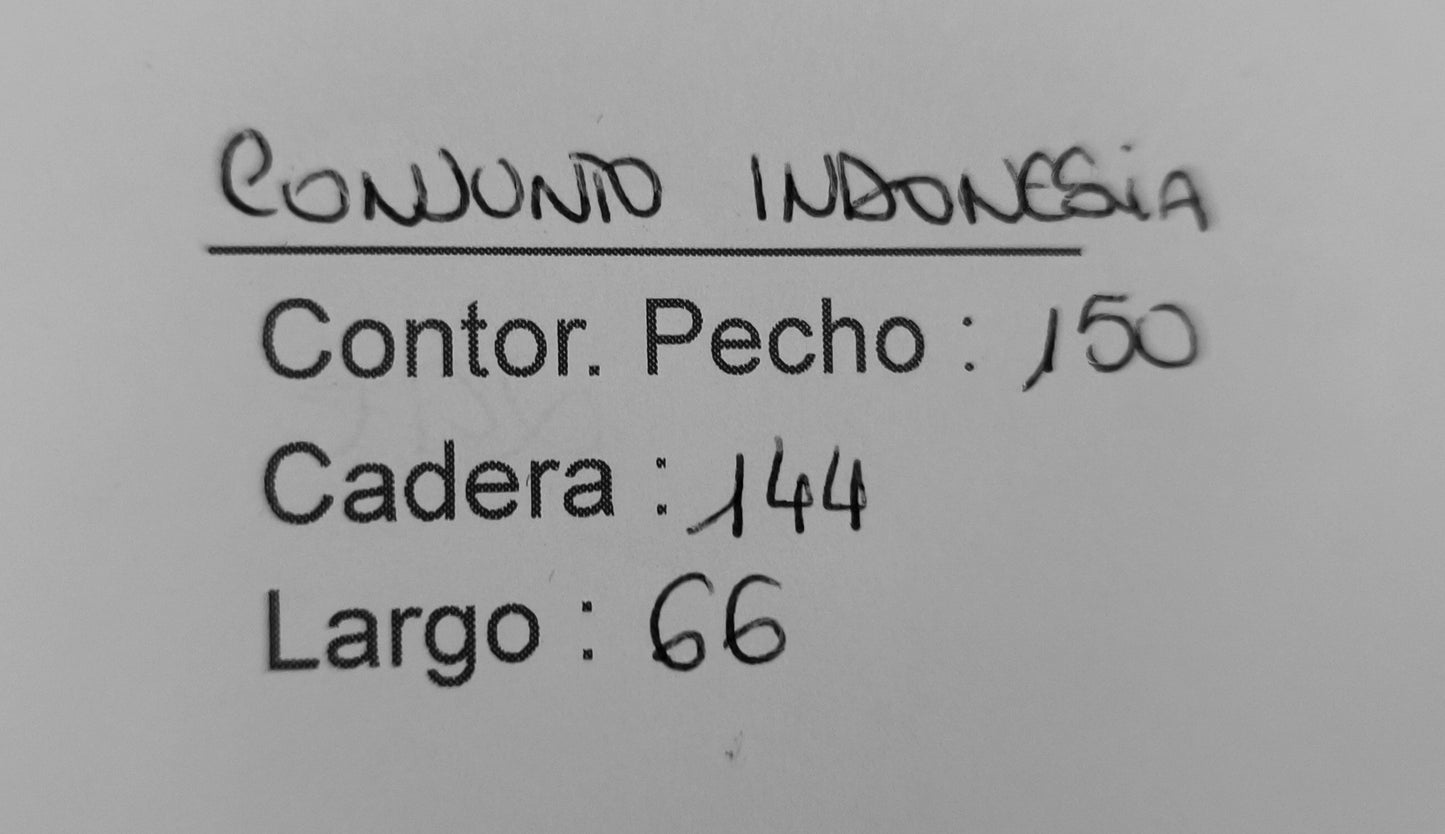 CONJUNTO INDONESIA
Contor. Pecho : 150
Cadera : 144
Largo : 66